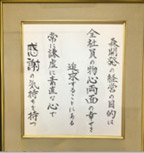 森開発の経営の目的は
全社員の物心両面の幸せを
追求することにある
常に謙虚に素直な心で
感謝の気持ちを持つ